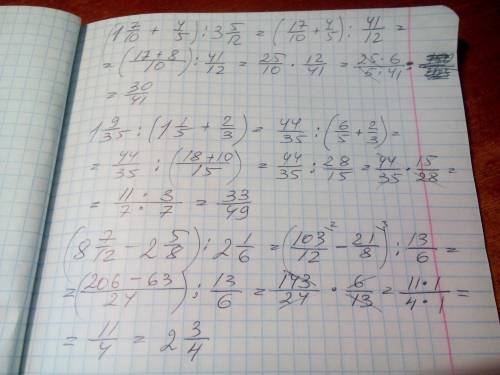 (1 7/10 + 4/5) : 3 5/12 = (17/10 + 4/5) : 41/12 =
= ((17+8)/10) : 41/12 = 25/10 · 12/41 = (25·6)/(5·41) =
= 30/41
1 9/35 : (1 1/5 + 2/3) = 44/35 : (6/5 + 2/3) =
= 44/35 : ((18+10)/15) = 44/35 : 28/15 = 44/35 · 15/28 =
= (11 · 3)/(7 · 7) = 33/49
(8 7/12 − 2 5/8) : 2 1/6 = (103/12 ² − 21/8 ³) : 13/6 =
= ((206 − 63)/24) : 13/6 = 143/24 · 6/13 = (11·1)/(4·1) =
= 11/4 = 2 3/4